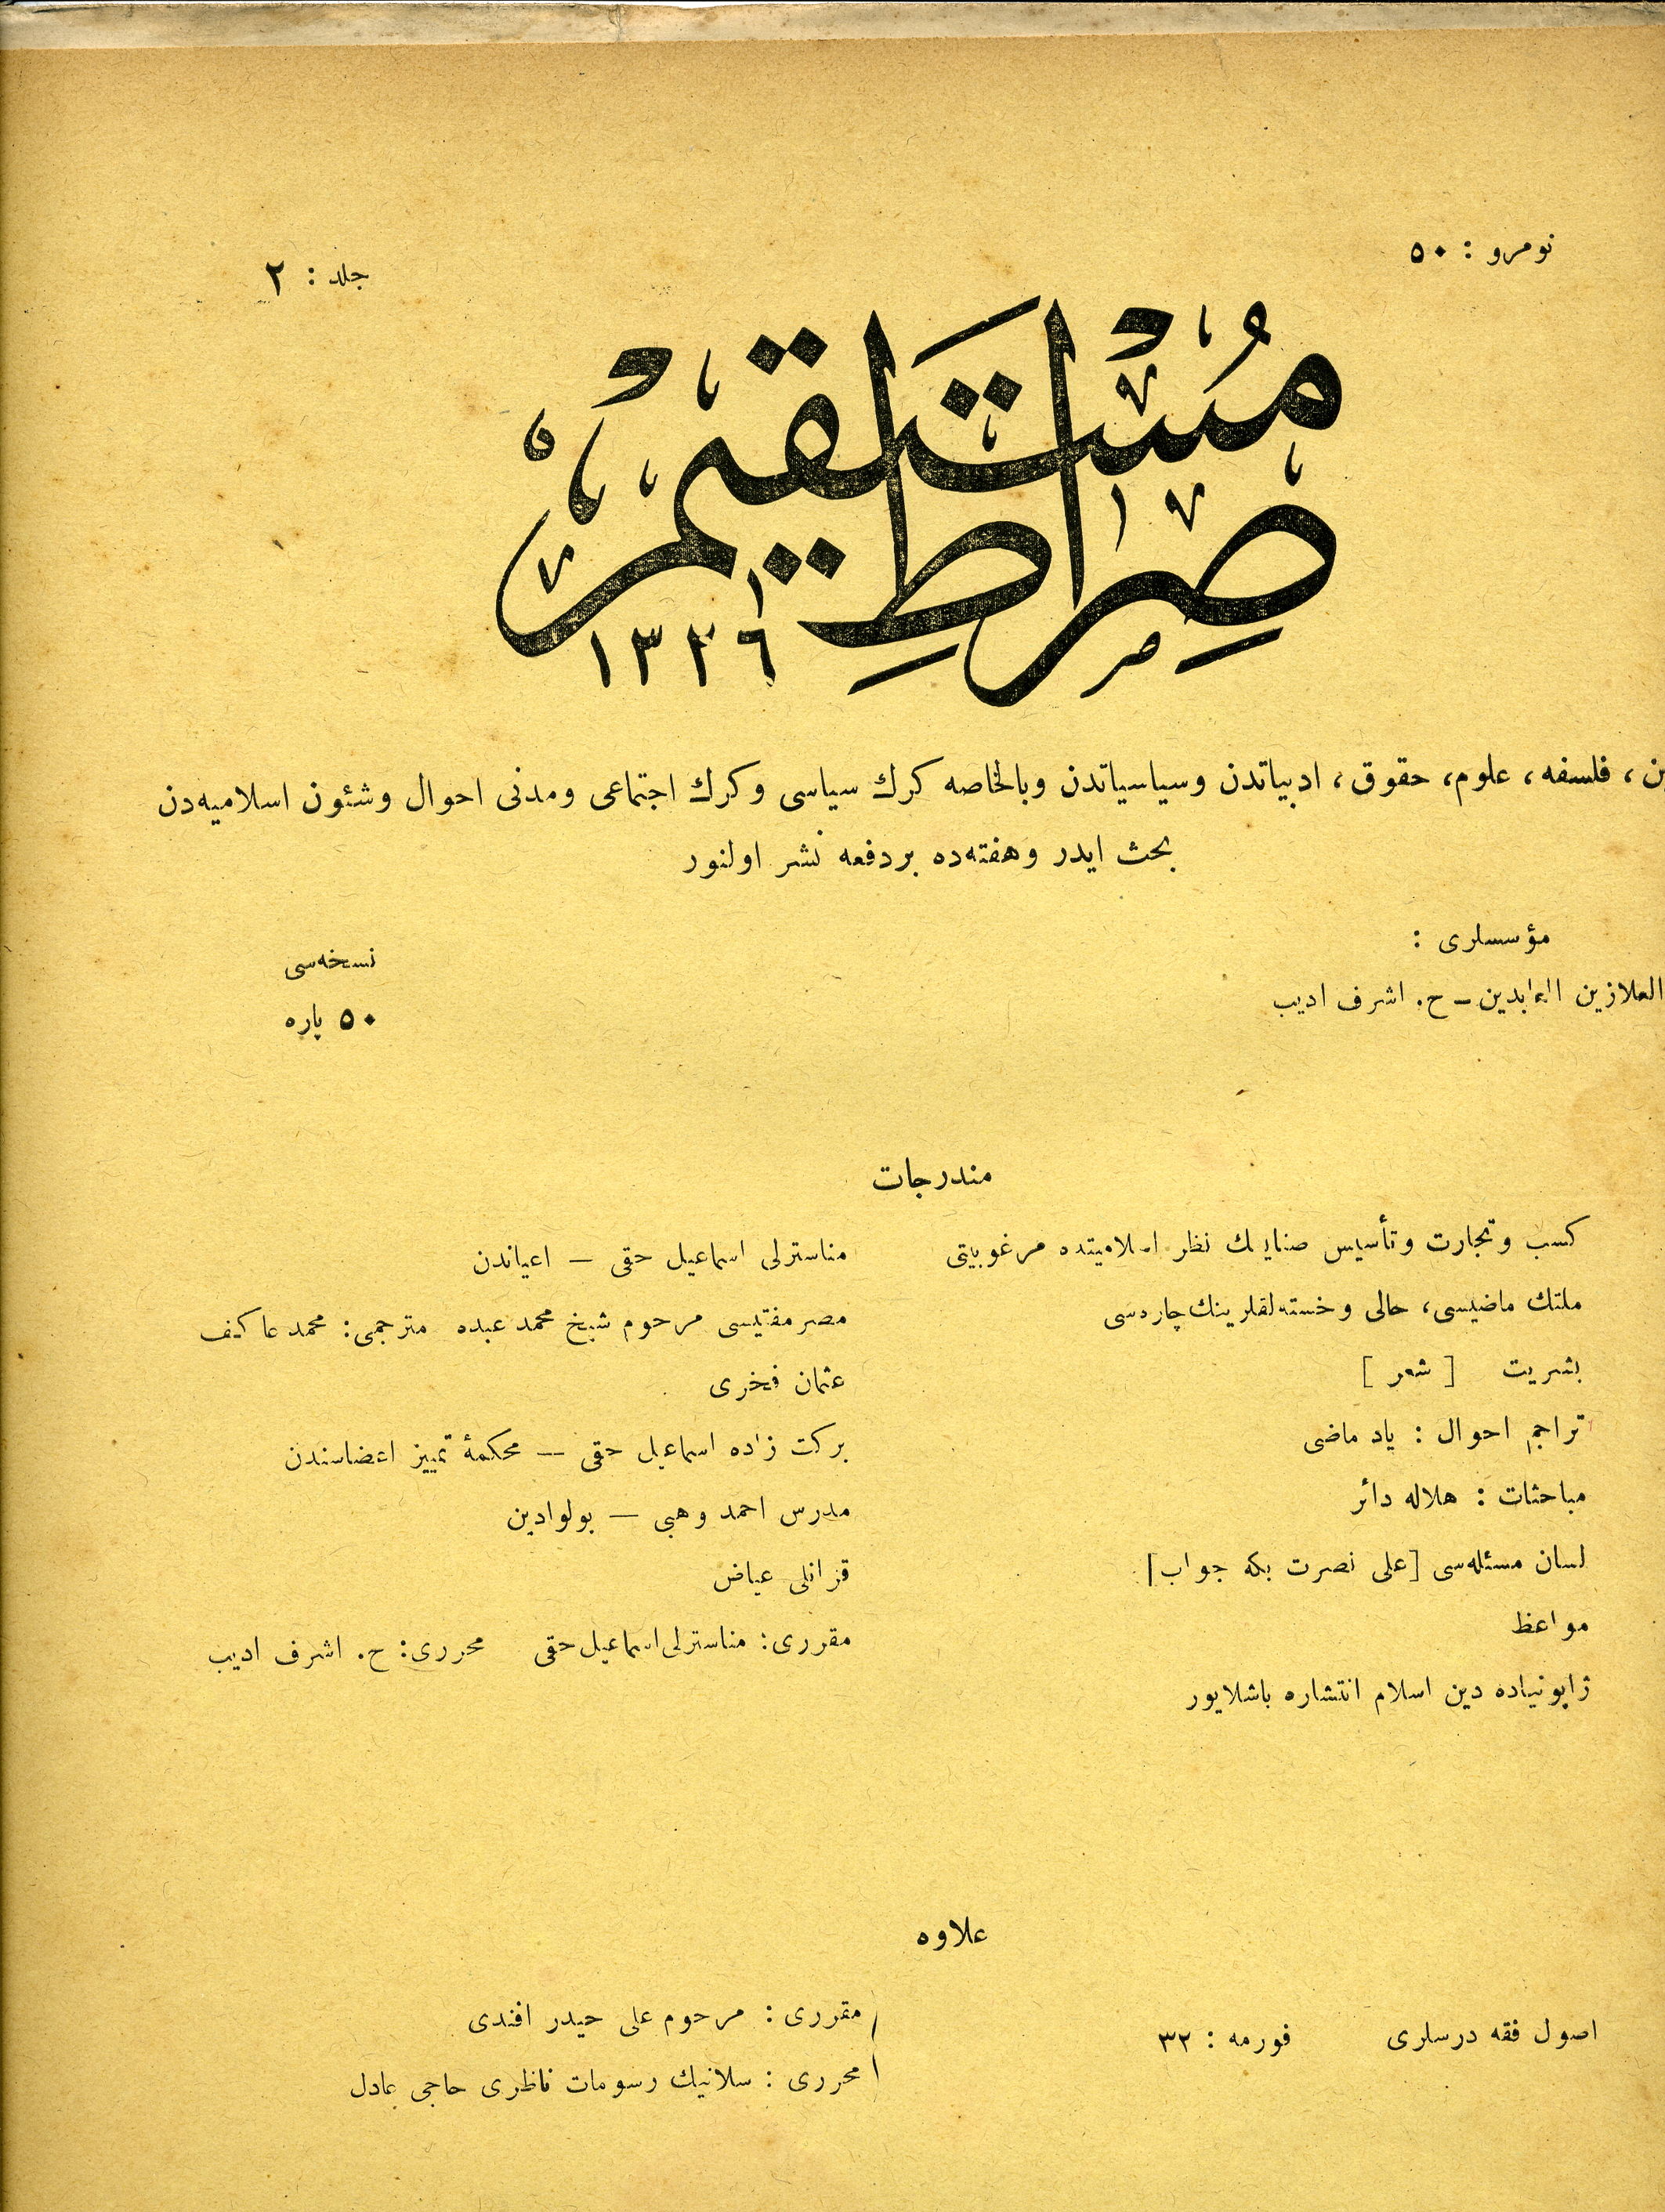 نومرو : ٥٠
جلد : ٢
صراط مستقیم
١٣٢٦
فلسفه ، علوم، حقوق ، ادبیاتدن وسیاسیاتدن وبالخاصه كرك سیاسی وكرك اجتماعی ومدنی احوال وشئون اسلامیه‌دن
بحث ایدر وهفته‌ده بردفعه نشر اولنور
مؤسسلری :
ابوالعلازین العابدین – ح. اشرف ادیب
نسخه‌سی
٥٠ پاره
مندرجات
كسب وتجارت وتأسیس صنایعك نظر اسلامیتده مرغوبیتی مناسترلی اسماعیل حقی — اعیاندن
ملتك ماضیسی، حالی وخسته‌لقلرینك چاره‌سی مصر مفتیسی مرحوم شیخ محمد عبده مترجمی: محمد عاكف
بشریت [ شعر ] عثمان فخری
تراجم احوال : یاد ماضی بركت زاده اسماعیل حقی — محكمهٔ تمییز اعضاسندن
مباحثات : هلاله دائر مدرس احمد وهبی — بولوادین
لسان مسئله‌سی [علی نصرت بكه جواب] قزانلی عیاض
مواعظ مقرری: مناسترلی اسماعیل حقی محرری: ح. اشرف ادیب
ژاپونیاده دین اسلام انتشاره باشلایور
علاوه
اصول فقه درسلری فورمه : ٣٢
مقرری : مرحوم علی حیدر افندی
محرری : سلانیك رسومات ناظری حاجی عادل